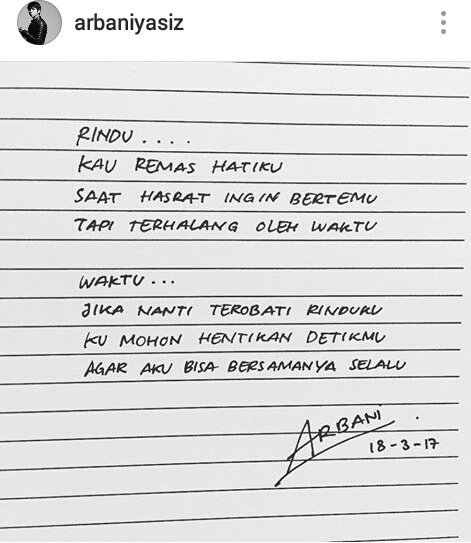 arbaniyasiz
RINDU . . . .
KAU REMAS HATIKU
SAAT HASRAT INGIN BERTEMU
TAPI TERHALANG OLEH WAKTU
WAKTU . . .
JIKA NANTI TEROBATI RINDUKU
KU MOHON HENTIKAN DETIKMU
AGAR AKU BISA BERSAMANYA SELALU
ARBANI .
18-3-17